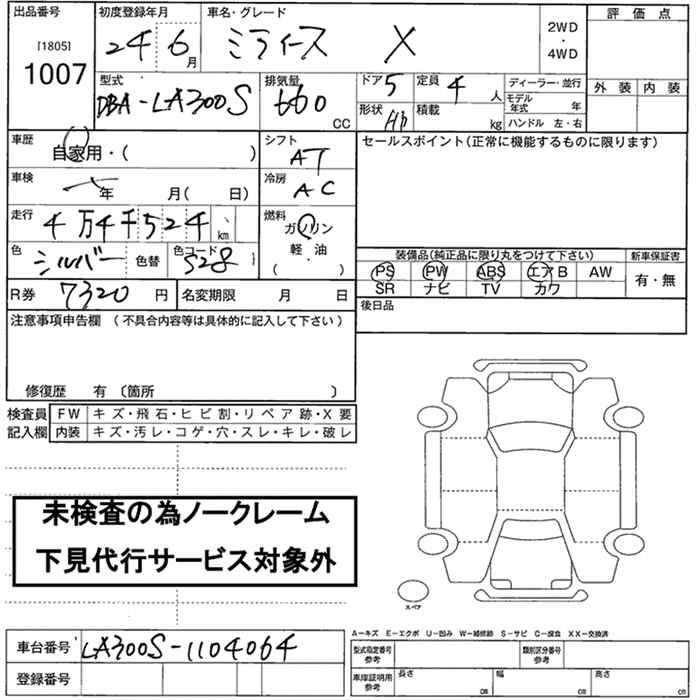 出品番号 初度登録年月 車名・グレード 評価点
[1805] 24 6月 ミライース X 2WD・4WD
1007
型式 排気量 ドア 5 定員 4人 ディーラー・並行 外装 内装
DBA-LA300S 660 CC 形状 HB 積載 kg モデル年式 年
ハンドル 左・右
車歴 自家用・( ) シフト AT セールスポイント(正常に機能するものに限ります)
車検 年 月( 日) 冷房 AC
走行 4万4千524 km 燃料 ガソリン
軽・油
( )
色 シルバー 色替 色コード S28
装備品(純正品に限り丸をつけて下さい) 新車保証書
PS PW ABS エアB AW 有・無
SR ナビ TV カワ
R券 7320円 名変期限 月 日 後日品
注意事項申告欄 (不具合内容等は具体的に記入して下さい)
修復歴 有 〔箇所 〕
検査員 FW キズ・飛石・ヒビ割・リペア跡・X要
記入欄 内装 キズ・汚レ・コゲ・穴・スレ・キレ・破レ
未検査の為ノークレーム
下見代行サービス対象外
スペア
A-キズ E-エクボ U-凹み W-補修跡 S-サビ C-腐食 XX-交換済
車台番号 LA300S-1104064
登録番号
型式指定番号 参考 類別区分番号 参考
車庫証明用 参考 長さ cm 幅 cm 高さ cm